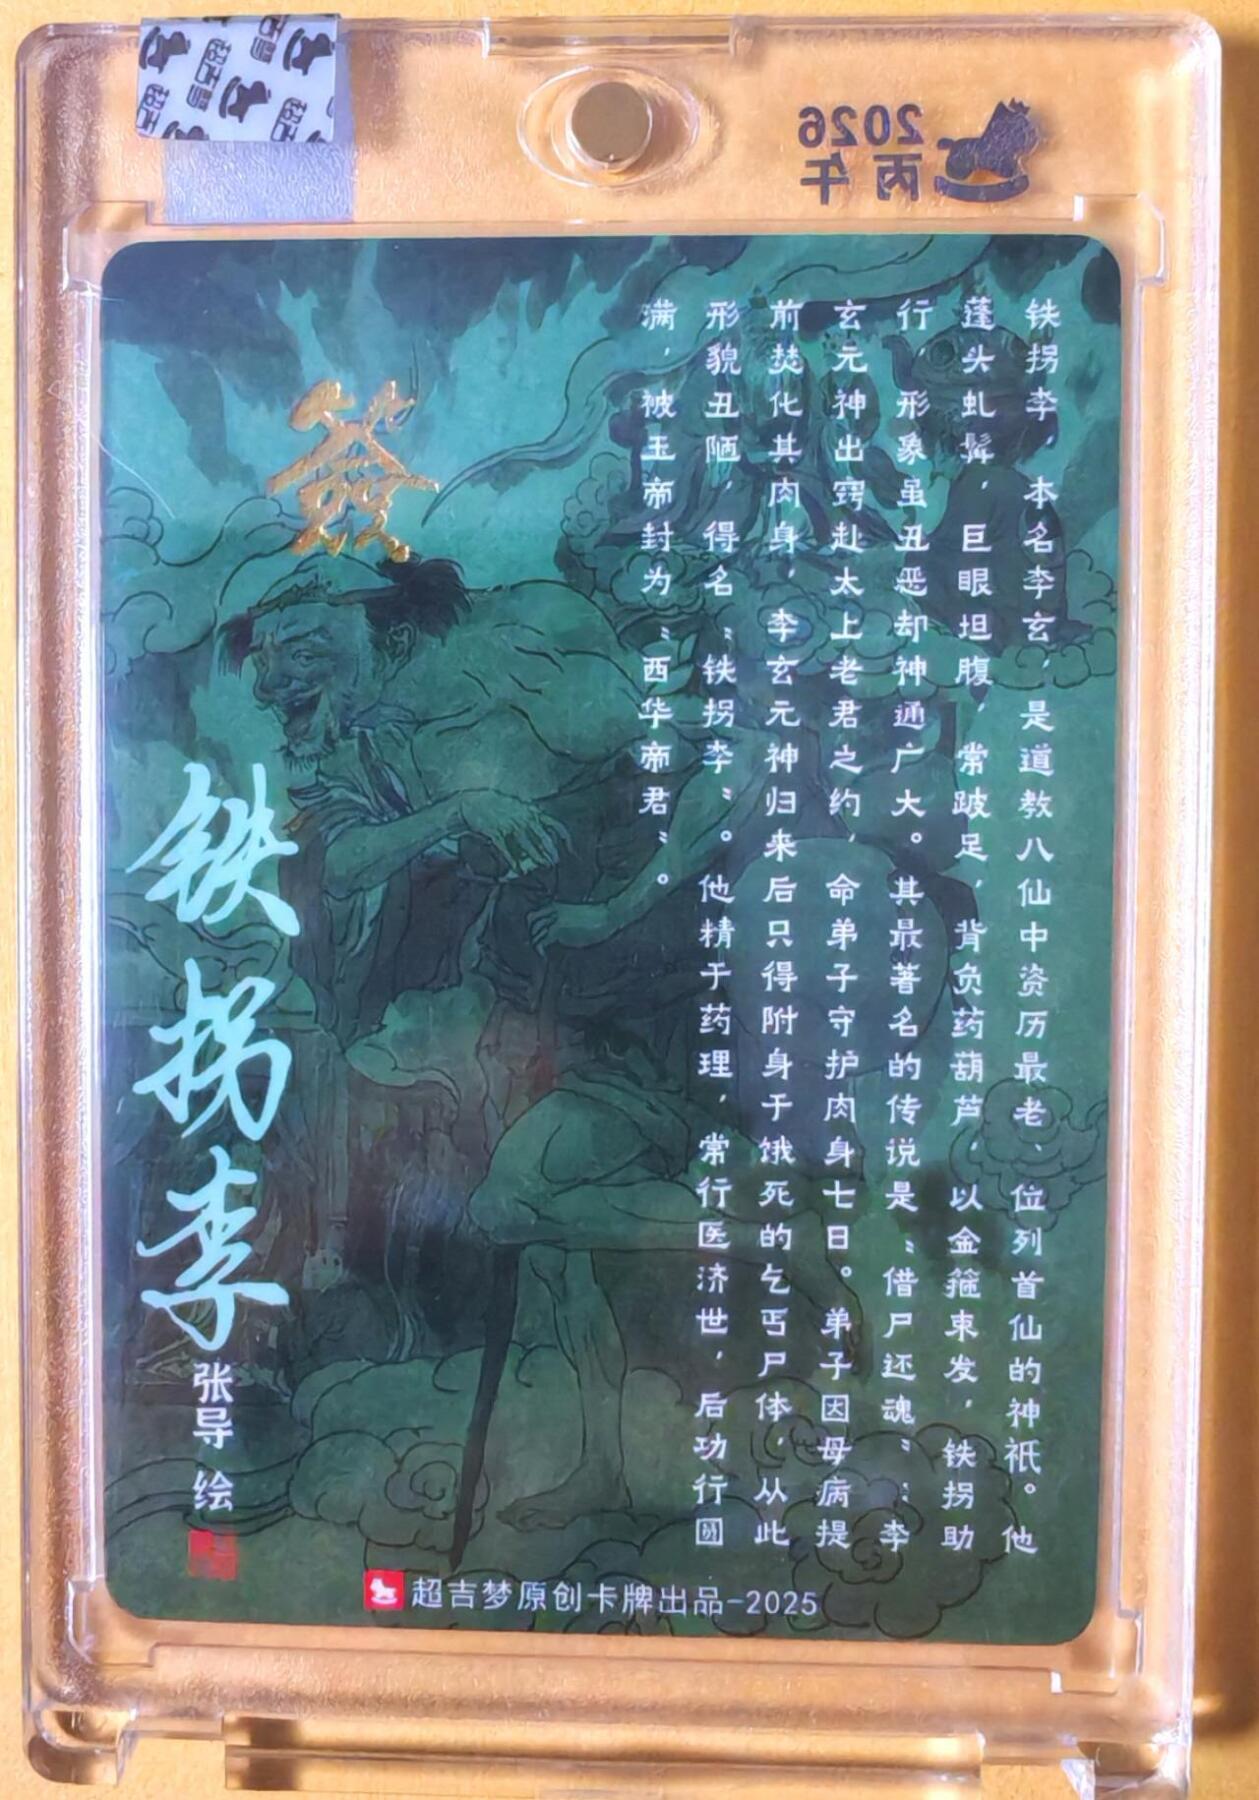 2026
丙午
铁拐李，本名李玄，是道教八仙中资历最老、位列首仙的神祇。他
蓬头虬髯，巨眼坦腹，常跛足，背负药葫芦，以金箍束发，铁拐助
行，形象虽丑恶却神通广大。其最著名的传说是“借尸还魂”：李
玄元神出窍赴太上老君之约，命弟子守护肉身七日。弟子因母病提
前焚化其肉身，李玄元神归来后只得附身于饿死的乞丐尸体，从此
形貌丑陋，得名“铁拐李”。他精于药理，常行医济世，后功行圆
满，被玉帝封为“西华帝君”。
铁拐李
张导 绘
超吉梦原创卡牌出品-2025